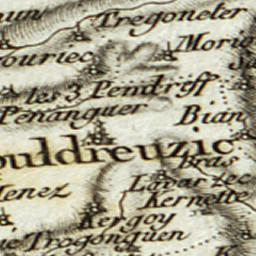 Tregoneter
les 3 Pendreff
Penanguer
Bian
ouldreuzic
Bras
Menez
Lavarzec
Kernette
Kergoy
Trogonguen